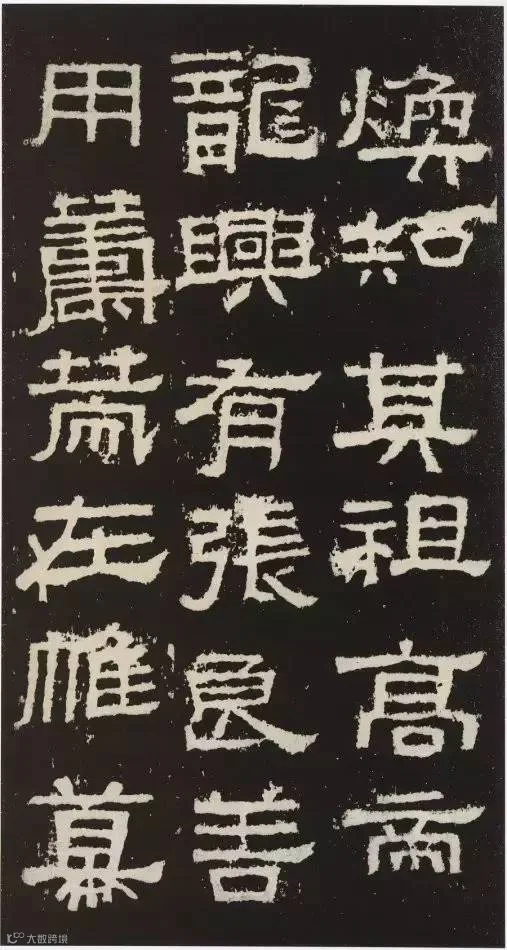 煥知其祖高帝
龍興有張良善
用籌策在帷幕
大数跨境